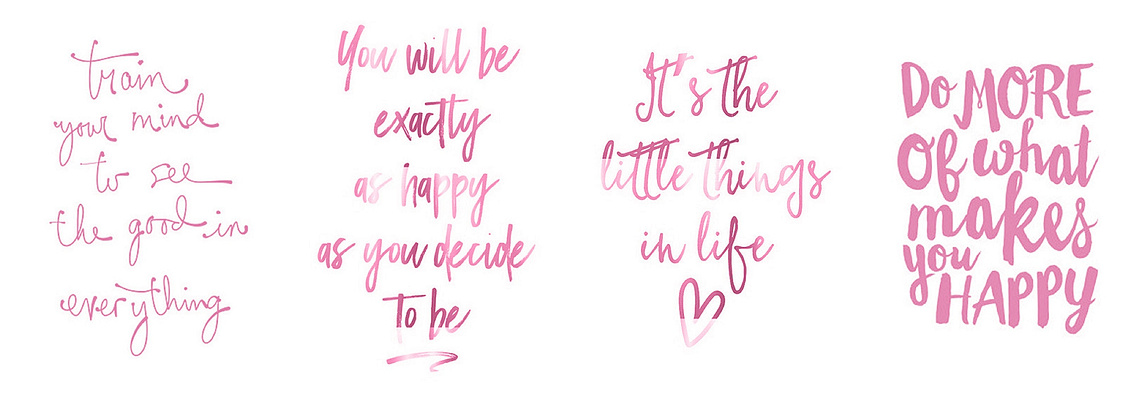 train
your mind
to see
the good in
everything
You will be
exactly
as happy
as you decide
to be
It's the
little things
in life
Do MORE
Of what
makes
you
HAPPY